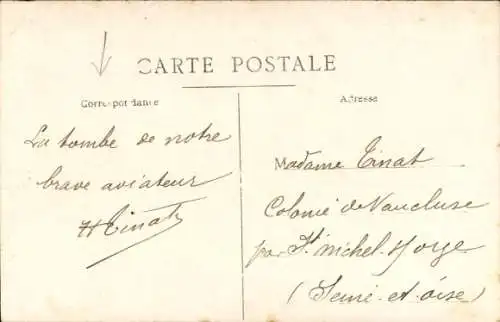 CARTE POSTALE
Correspondance
La tombe de notre
brave aviateur
H Tinat
Adresse
Madame Tinat
Colonie de Vaucluse
par St Michel s/ orge
(Seine-et-oise)